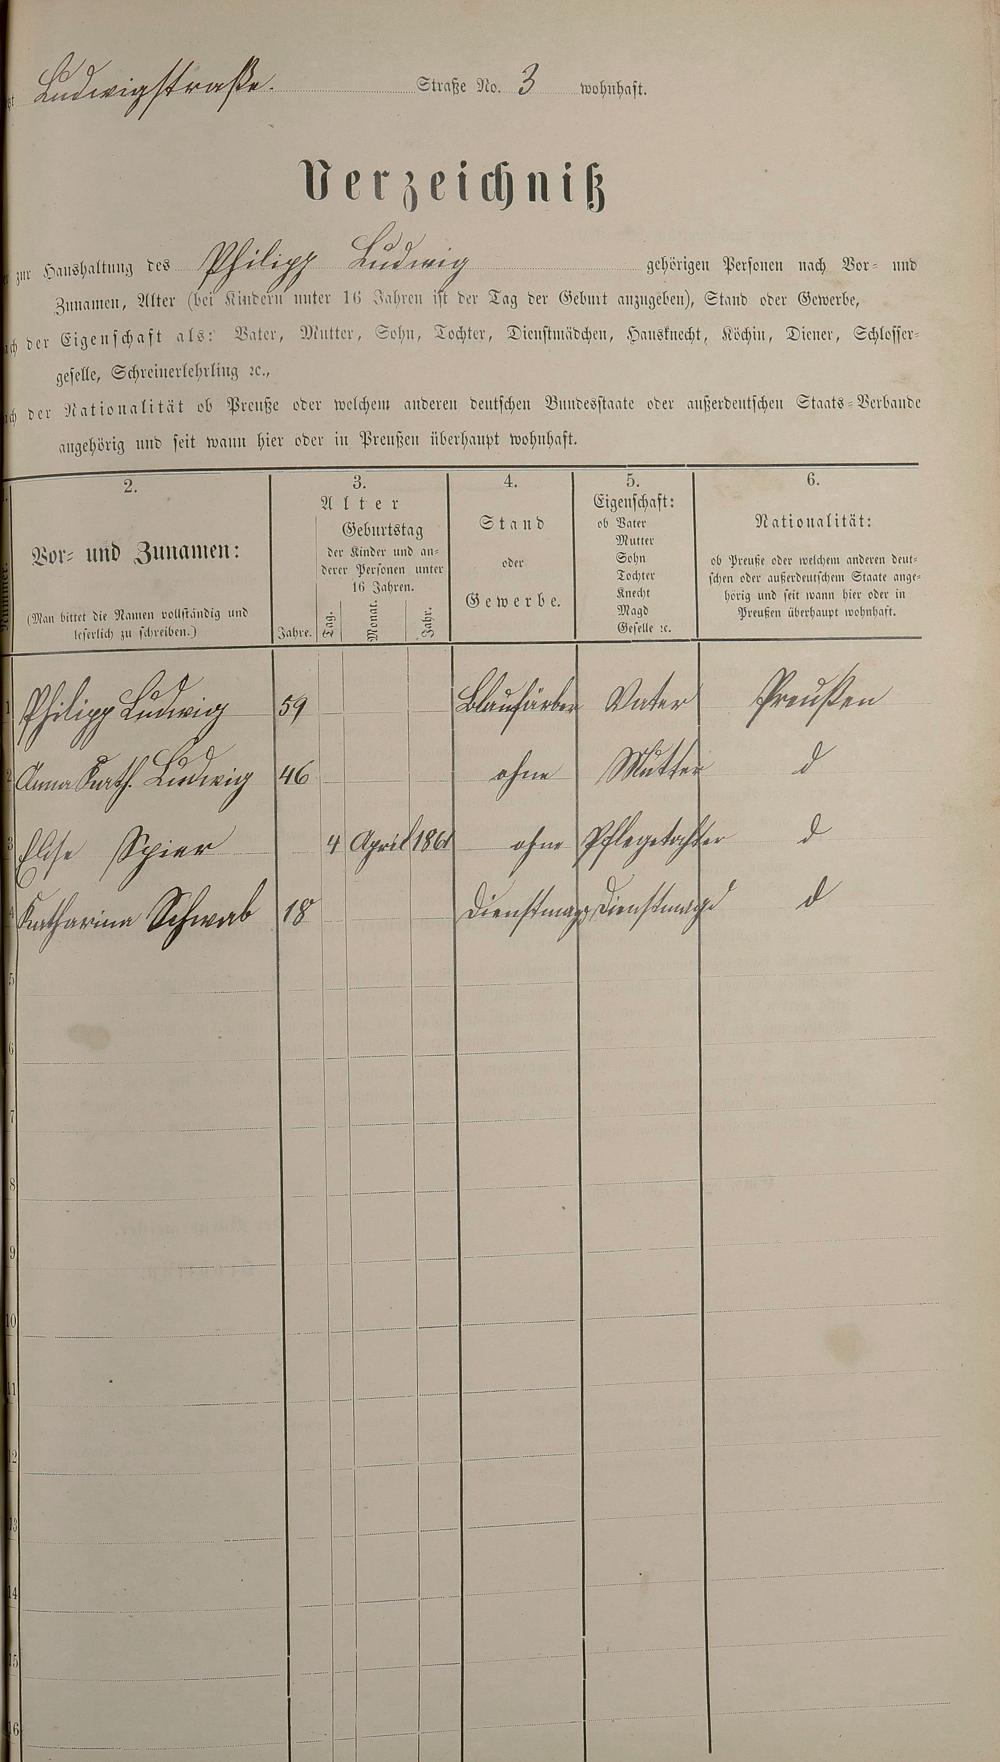 Ludwigstraße. Straße No. 3 wohnhaft.
Verzeichniß
zur Haushaltung des Philipp Ludwig gehörigen Personen nach Vor- und
Zunamen, Alter (bei Kindern unter 16 Jahren ist der Tag der Geburt anzugeben), Stand oder Gewerbe,
der Eigenschaft als: Vater, Mutter, Sohn, Tochter, Dienstmädchen, Hausknecht, Köchin, Diener, Schlosser-
geselle, Schreinerlehrling ꝛc.,
der Nationalität ob Preuße oder welchem anderen deutschen Bundesstaate oder außerdeutschen Staats-Verbande
angehörig und seit wann hier oder in Preußen überhaupt wohnhaft.
Nummer.
2.
Vor- und Zunamen:
(Man bittet die Namen vollständig und
leserlich zu schreiben.)
3.
Alter
Geburtstag
der Kinder und an-
derer Personen unter
16 Jahren.
Jahre. Tag. Monat. Jahr.
4.
Stand
oder
Gewerbe.
5.
Eigenschaft:
ob Vater
Mutter
Sohn
Tochter
Knecht
Magd
Geselle ꝛc.
6.
Nationalität:
ob Preuße oder welchem anderen deut-
schen oder außerdeutschem Staate ange-
hörig und seit wann hier oder in
Preußen überhaupt wohnhaft.
1 Philipp Ludwig 59 Blaufärber Vater Preußen
2 Anna Kath. Ludwig 46 ohne Mutter d
3 Elise Spier 4 April 1861 ohne Pflegetochter d
4 Katharina Schwab 18 Dienstmagd Dienstmagd d
5
6
7
8
9
10
11
12
13
14
15
16